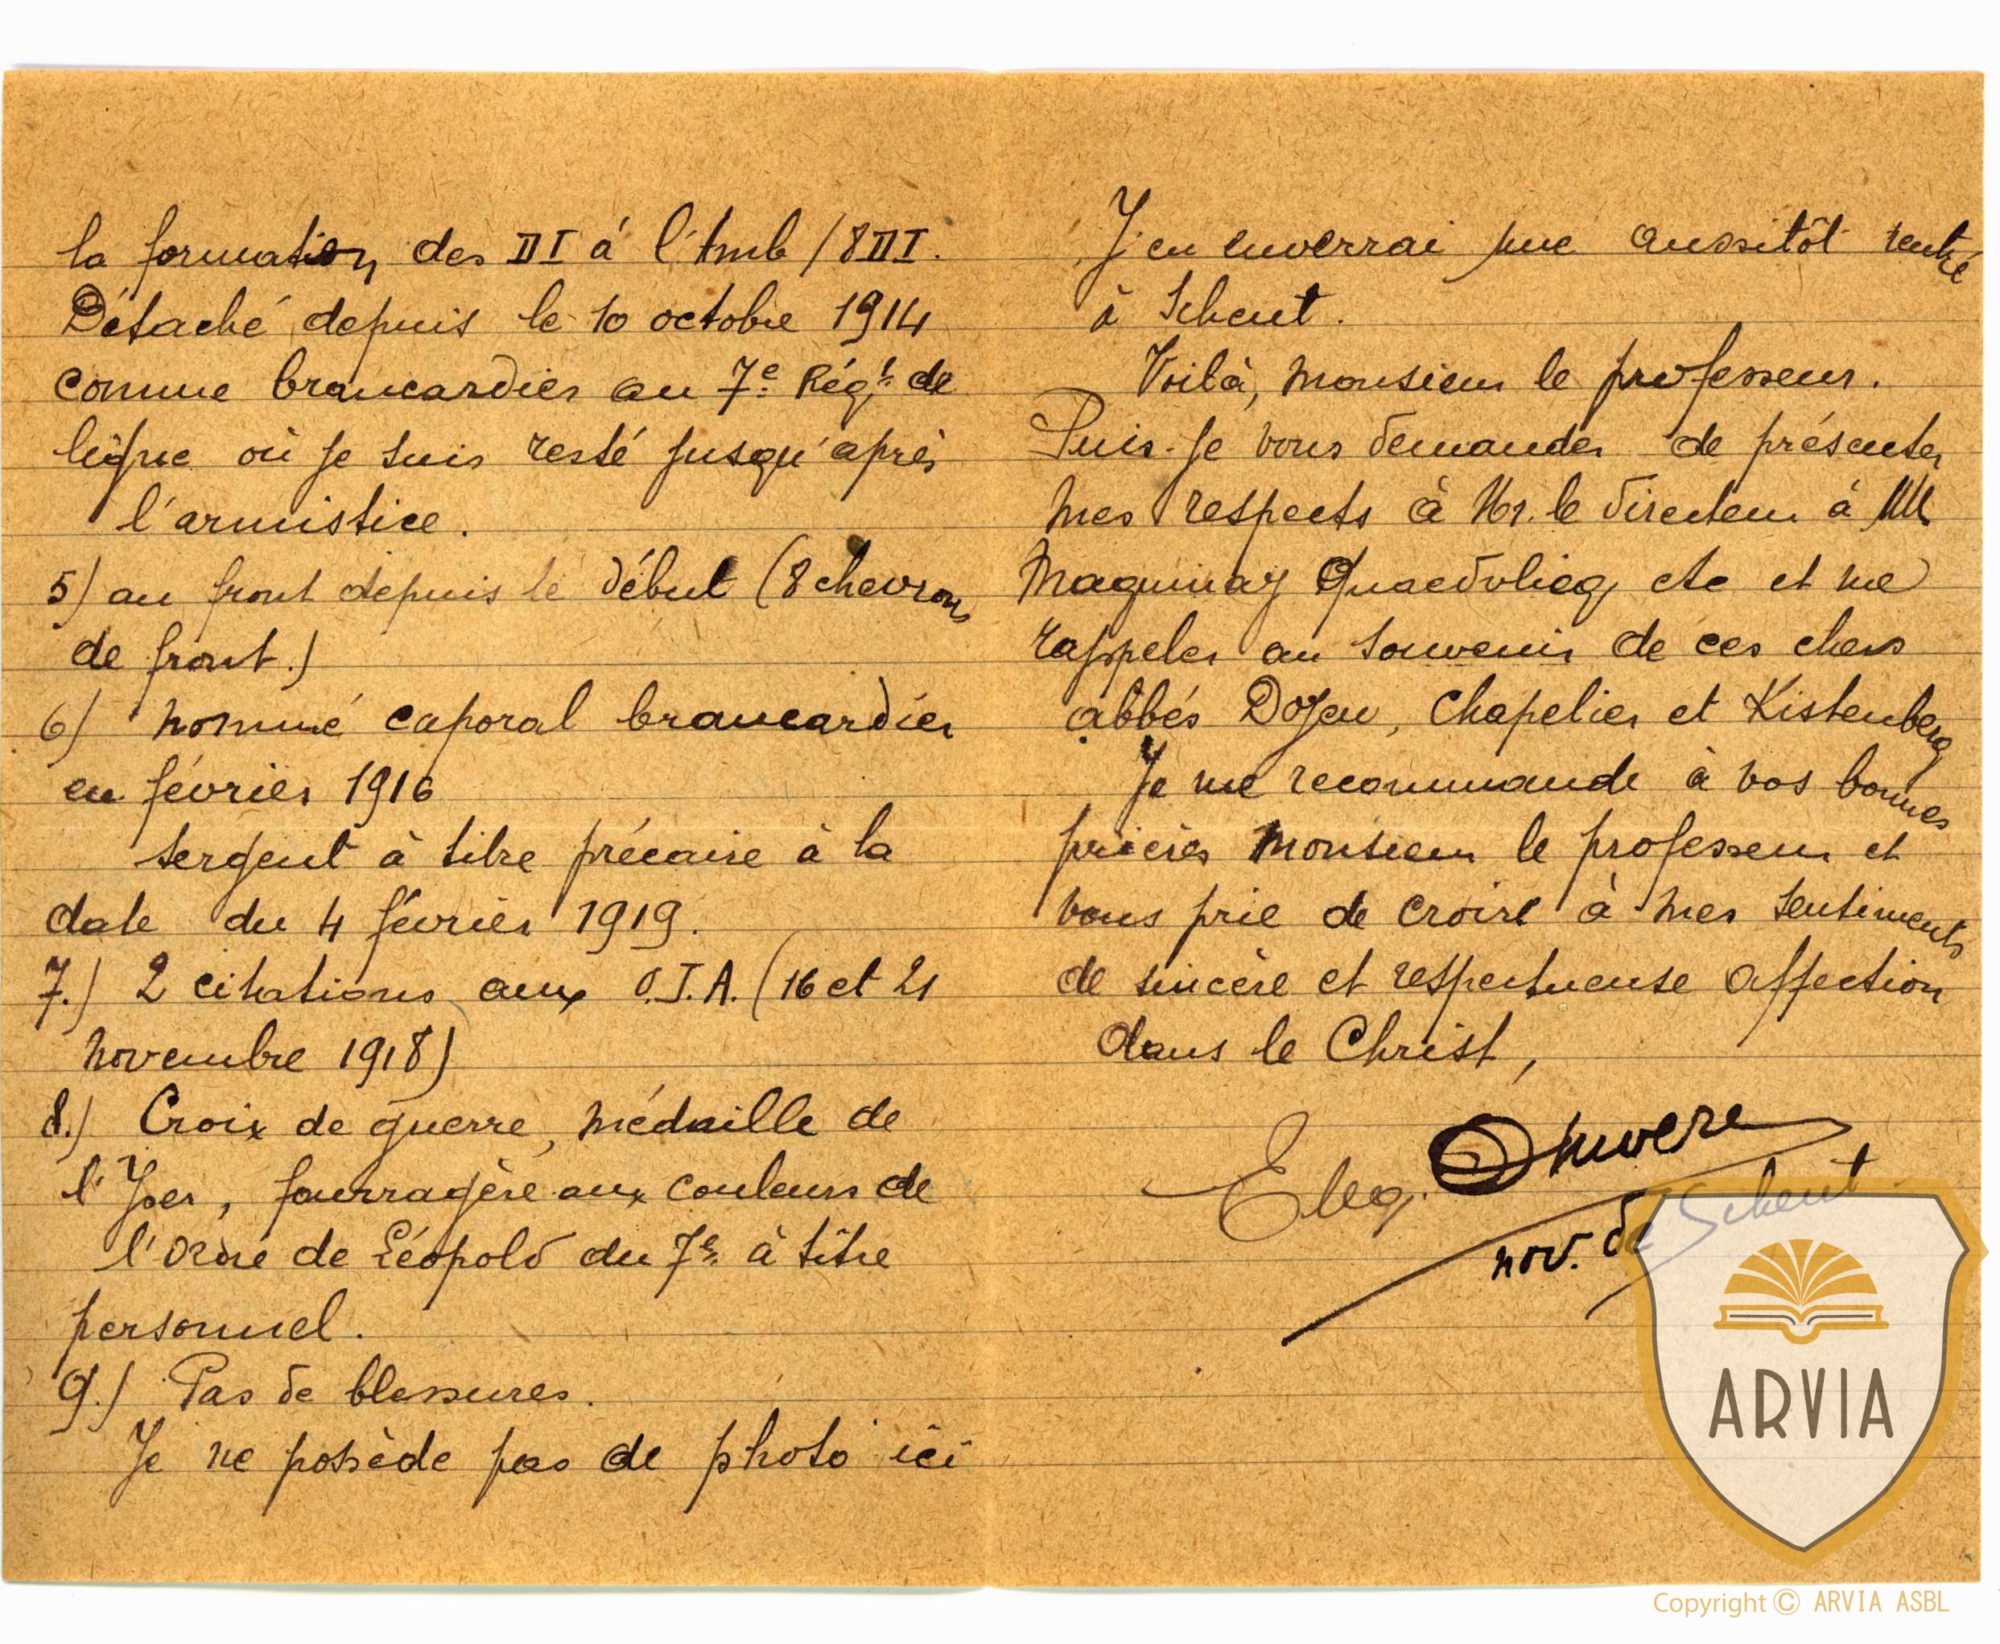 la formation des DI à l'Amb / 8 DI.
Détaché depuis le 10 octobre 1914
comme brancardier au 7e Régt. de
ligne où je suis resté jusqu'après
l'armistice.
5) au front depuis le début (8 chevrons
de front.)
6) nommé caporal brancardier
en février 1916
sergent à titre précaire à la
date du 4 février 1919.
7.) 2 citations aux O.J.A. (16 et 21
novembre 1918)
8.) Croix de guerre, médaille de
l'Yser, fourragère aux couleurs de
l'Ordre de Léopold du 7e à titre
personnel.
9.) Pas de blessures.
Je ne possède pas de photo ici
J'en enverrai une aussitôt rentré
à Scheut.
Voilà, monsieur le professeur.
Puis-je vous demander de présenter
mes respects à Mr. le directeur à MM
Maquinay Quaedvlieg etc et me
rappeler au souvenir de ces chers
abbés Doyen, Chapelier et Kistenberg
Je me recommande à vos bonnes
prières monsieur le professeur et
vous prie de croire à mes sentiments
de sincère et respectueuse affection
dans le Christ,
nov. de Scheut
ARVIA
Copyright © ARVIA ASBL